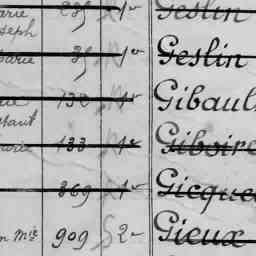 arie 289 1er Geslin
oseph
arie 39 1er Geslin
132 1er Gibaul
tant
133 1er Giboire
369 1er Gicque
n Mie 909 2e Gieux